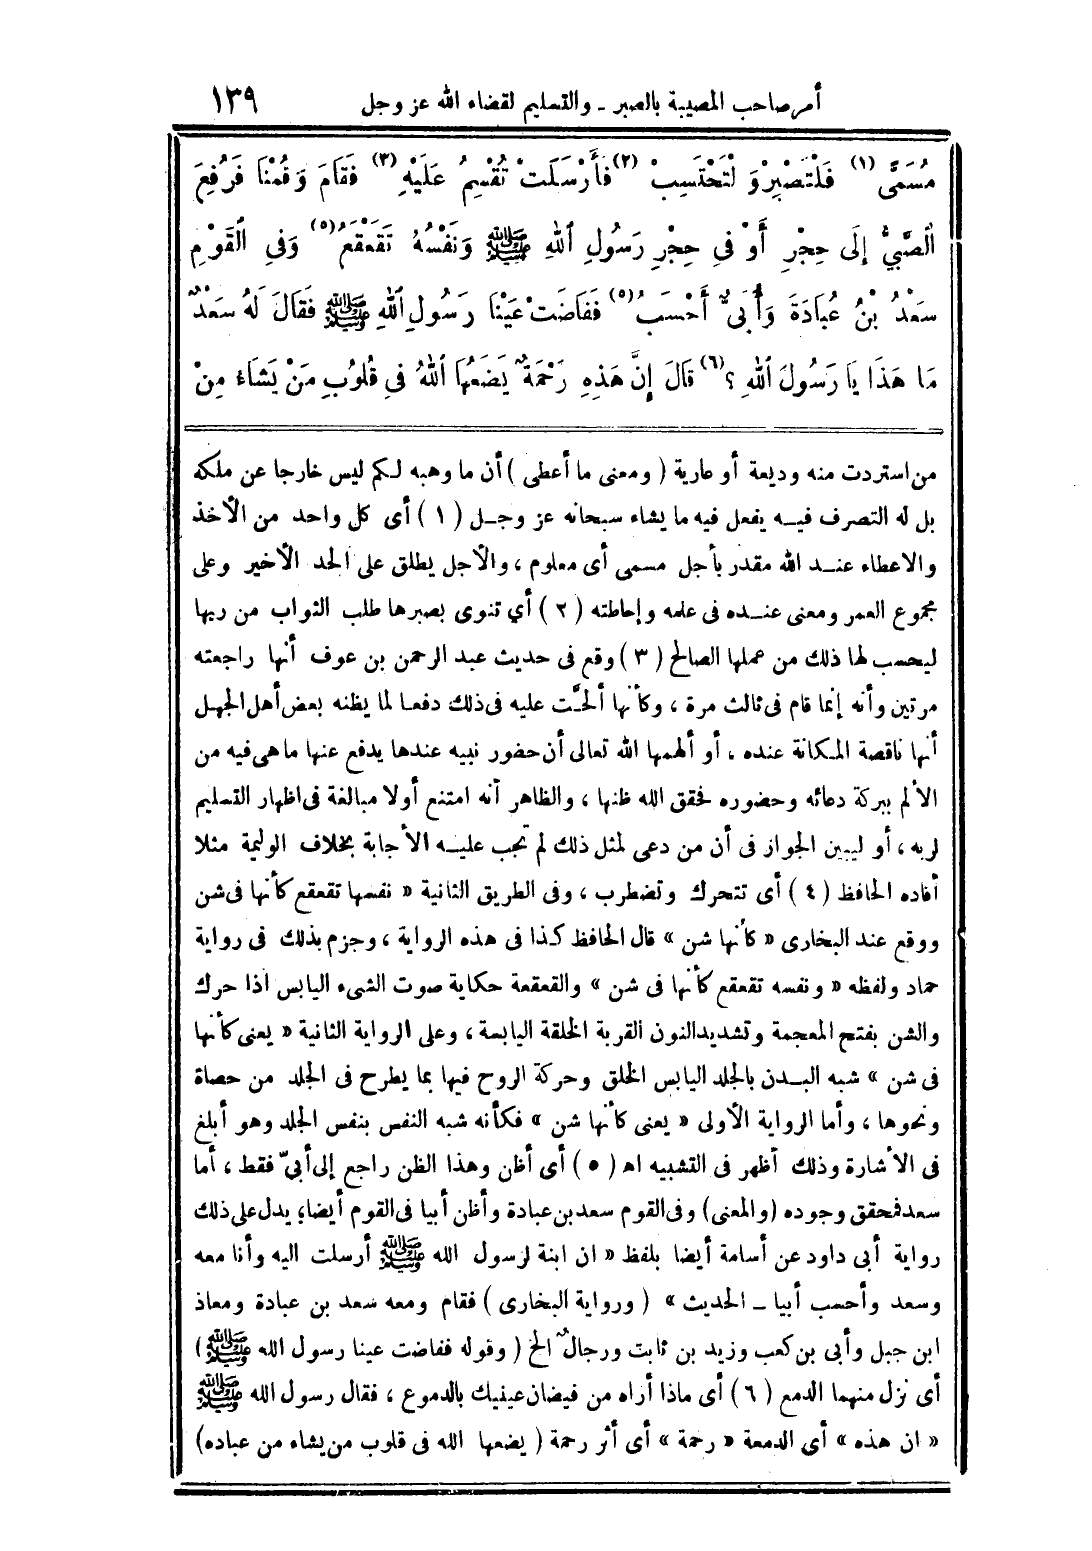 أمر صاحب المصيبة بالصبر - والتسليم لقضاء الله عز وجل ١٣٩
مُسَمًّى (١) فَلْتَصْبِرْ وَ لْتَحْتَسِبْ (٢) فَأَرْسَلَتْ تُقْسِمُ عَلَيْهِ (٣) فَقَامَ وَقُمْنَا فَرُفِعَ
الْصَّبِيُّ إِلَى حِجْرِ أَوْ فِى حِجْرِ رَسُولِ اللهِ ﷺ وَنَفْسُهُ تَقَعْقَعُ (٥) وَفِى الْقَوْمِ
سَعْدُ بْنُ عُبَادَةَ وَأُبَىٌّ أَحْسَبُ (٥) فَفَاضَتْ عَيْنَا رَسُولِ اللهِ ﷺ فَقَالَ لَهُ سَعْدٌ
مَا هَذَا يَا رَسُولَ اللهِ ؟ (٦) قَالَ إِنَّ هَذِهِ رَحْمَةٌ يَضَعُهَا اللهُ فِى قُلُوبِ مَنْ يَشَاءُ مِنْ
من استردت منه وديعة أو عارية ( ومعنى ما أعطى ) أن ما وهبه لكم ليس خارجا عن ملكه
بل له التصرف فيه يفعل فيه ما يشاء سبحانه عز وجل ( ١ ) أى كل واحد من الأخذ
والاعطاء عند الله مقدر بأجل مسمى أى معلوم ، والأجل يطلق على الحد الأخير وعلى
مجموع العمر ومعنى عنده فى علمه وإحاطته ( ٢ ) أي تنوى بصبرها طلب الثواب من ربها
ليحسب لها ذلك من عملها الصالح ( ٣ ) وقع فى حديث عبد الرحمن بن عوف أنها راجعته
مرتين وأنه إنما قام فى ثالث مرة ، وكأنها ألحَّت عليه فى ذلك دفعا لما يظنه بعض أهل الجهل
أنها ناقصة المكانة عنده ، أو ألهمها الله تعالى أن حضور نبيه عندها يدفع عنها ما هى فيه من
الألم ببركة دعائه وحضوره فحقق الله ظنها ، والظاهر أنه امتنع أولا مبالغة فى اظهار التسليم
لربه ، أو ليبين الجواز فى أن من دعى لمثل ذلك لم تجب عليه الأجابة بخلاف الوليمة مثلا
أفاده الحافظ ( ٤ ) أى تتحرك وتضطرب ، وفى الطريق الثانية « نفسها تقعقع كأنها فى شن
ووقع عند البخارى « كأنها شن » قال الحافظ كذا فى هذه الرواية ، وجزم بذلك فى رواية
حماد ولفظه « ونفسه تقعقع كأنها فى شن » والقعقعة حكاية صوت الشىء اليابس اذا حرك
والشن بفتح المعجمة وتشديد النون القربة الخلقة اليابسة ، وعلى الرواية الثانية « يعنى كأنها
فى شن » شبه البدن بالجلد اليابس الخلق وحركة الروح فيها بما يطرح فى الجلد من حصاة
ونحوها ، وأما الرواية الأولى « يعنى كأنها شن » فكأنه شبه النفس بنفس الجلد وهو أبلغ
فى الأشارة وذلك أظهر فى التشبيه اه ( ٥ ) أى أظن وهذا الظن راجع إلى أبىّ فقط ، أما
سعد فمحقق وجوده (والمعنى) وفى القوم سعد بن عبادة وأظن أبيا فى القوم أيضا؛ يدل على ذلك
رواية أبى داود عن أسامة أيضا بلفظ « ان ابنة لرسول الله ﷺ أرسلت اليه وأنا معه
وسعد وأحسب أبيا - الحديث » ( ورواية البخارى ) فقام ومعه سعد بن عبادة ومعاذ
ابن جبل وأبى بن كعب وزيد بن ثابت ورجالٌ الخ ( وقوله ففاضت عينا رسول الله ﷺ )
أى نزل منهما الدمع ( ٦ ) أى ماذا أراه من فيضان عينيك بالدموع ، فقال رسول الله ﷺ
« ان هذه » أى الدمعة « رحمة » أى أثر رحمة ( يضعها الله فى قلوب من يشاء من عباده)